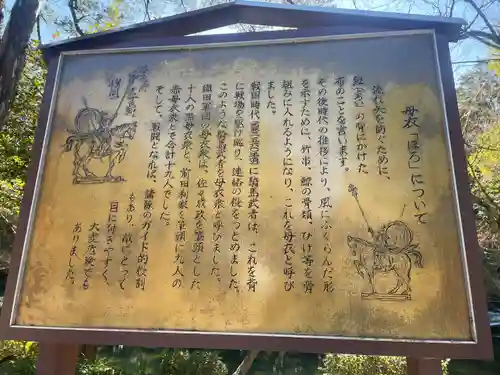 母衣「ほろ」について
流れ矢を防ぐために、
鎧の背にかけた
布のことを言います。
その後時代の推移により、風にふくらんだ形
を示すために、竹串、鯨の骨類、ひげ等を骨
組みに入れるようになり、これを母衣と呼び
ました。
戦国時代に騎馬武者は、これを背
に戦場を駆け巡り、連絡の役をつとめました。
このような騎馬武者を母衣衆と呼びました。
織田軍団の母衣衆は、佐々成政を筆頭とした
十人の黒母衣衆と、前田利家を筆頭の九人の
赤母衣衆と合計十九人でした。
そして、戦闘となれば、諸隊のガイド的役割
もあり、敵にとって
目に付きやすく、
大変危険でも
ありました。